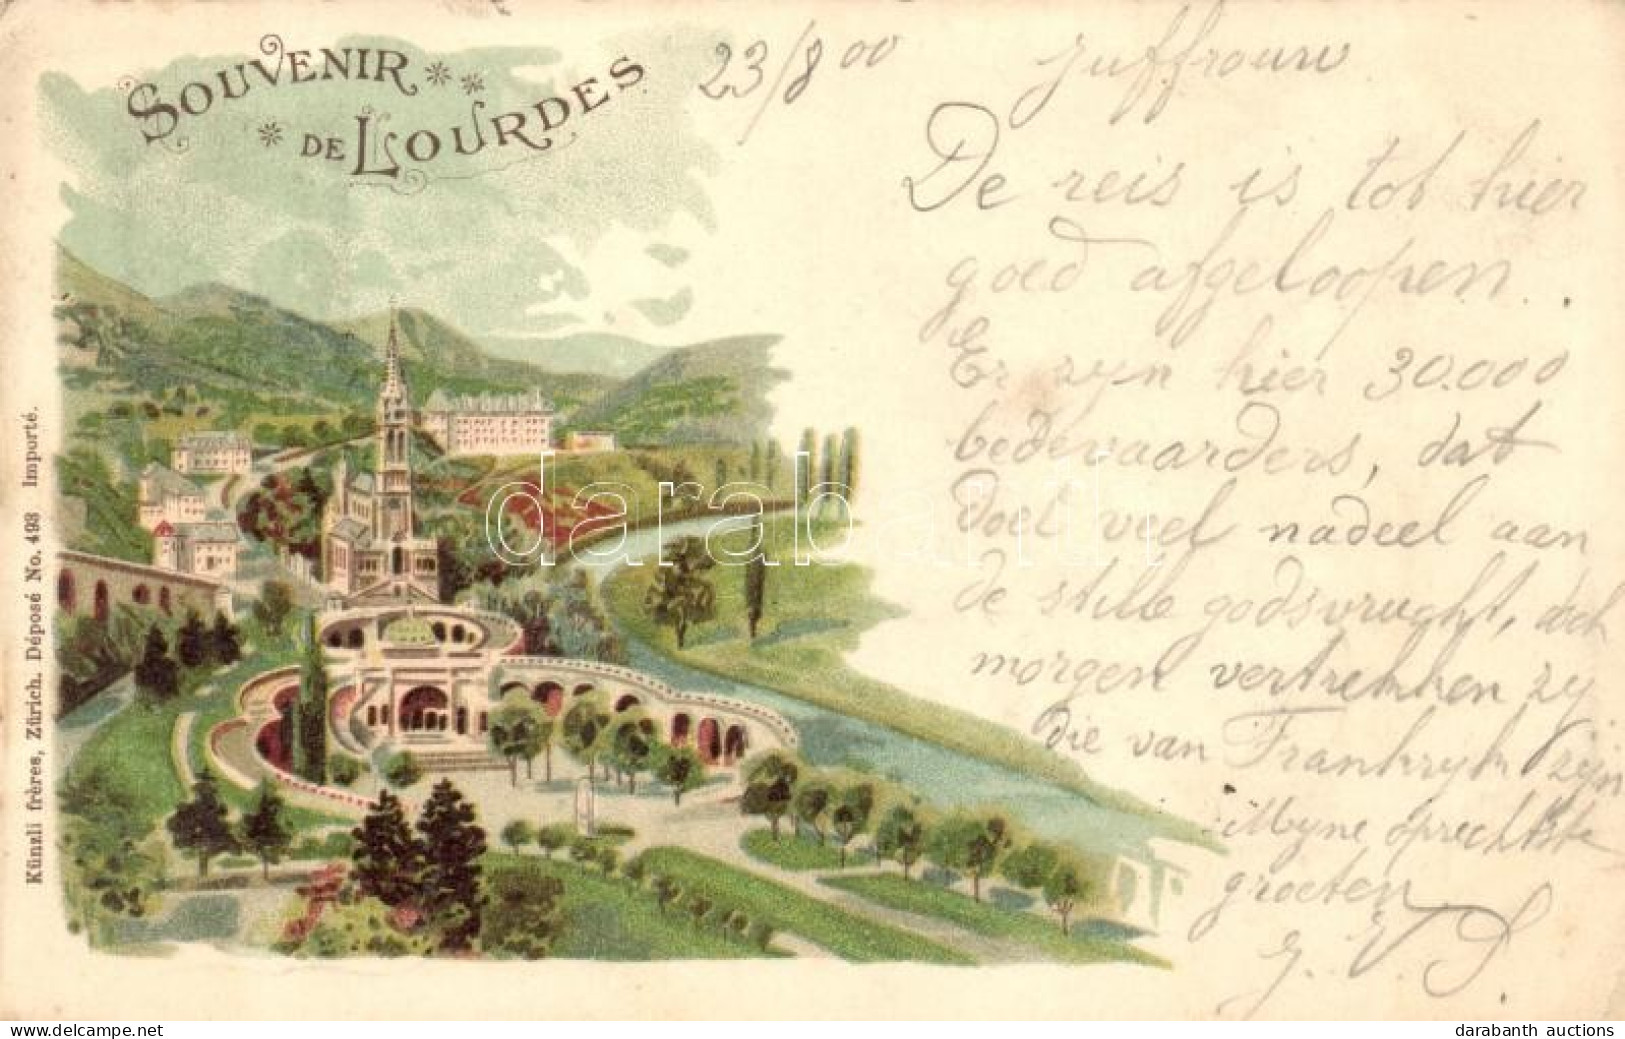 SOUVENIR
DE LOURDES
23/8 00
Juffrouw
De reis is tot hier
goed afgeloopen.
Er zyn hier 30.000
bedevaarders, dat
doet veel nadeel aan
de stille godsvrucht, doch
morgen vertrekken zy
die van Frankryk zyn
Myne oprechtste
groeten
J. V. S.
Künzli frères, Zürich. Déposé No. 493 Importé.
darabanth
www.delcampe.net
darabanth auctions